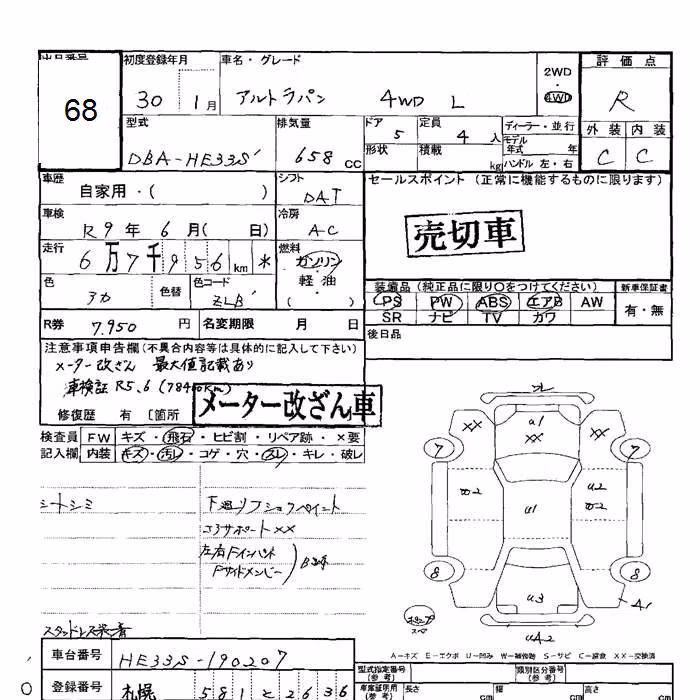 68
初度登録年月 車名・グレード 2WD 評価点
30 1月 アルトラパン 4WD L 4WD R
型式 排気量 ドア 5 定員 4人 ディーラー・並行 外装 内装
DBA-HE33S 658 CC 形状 積載 kg モデル年式 年 C C
ハンドル 左・右
車歴 シフト セールスポイント (正常に機能するものに限ります)
自家用・( ) DAT
車検 冷房 売切車
R9年 6月( 日) A-C
走行 燃料
6万7千956km * ガソリン
軽・油
( )
色 色替 色コード 装備品 (純正品に限り○をつけてください) 新車保証書
アカ ZLB PS PW ABS エアB AW 有・無
SR ナビ TV カワ
R券 7,950 円 名変期限 月 日 後日品
注意事項申告欄(不具合内容等は具体的に記入して下さい)
メーター改ざん 最大値記載あり
車検証 R5.6 (78400Km)
修復歴 有 〔箇所 メーター改ざん車
検査員 FW キズ・飛石・ヒビ割・リペア跡・×要
記入欄 内装 キズ・汚レ・コゲ・穴・スレ・キレ・破レ
シートシミ 下廻りフショクペイント
コアサポートXX
左右Fインパネ
Fサイドメンバー
スタッドレス装着
XX a1 XX XX
7 7
u1 u2
8 8
u3 4.1
u42
A-キズ E-エクボ U-凹み W-補修跡 S-サビ C-腐食 XX-交換済
車台番号 HE33S-190207 型式指定番号(参考) 類別区分番号(参考)
登録番号 札幌 581 と 2636 車庫証明用(参考) 長さ cm 幅 cm 高さ cm